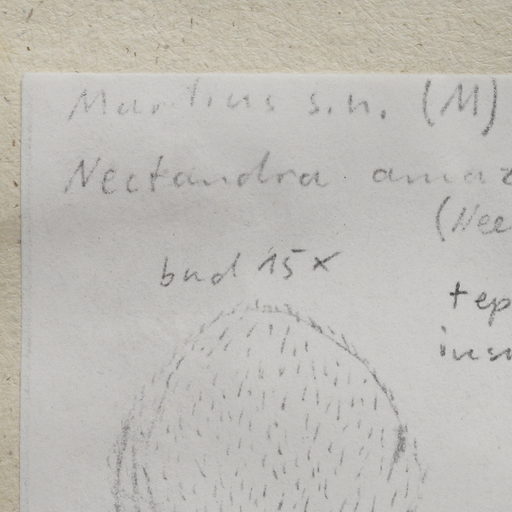 Martius s.n. (M)
Nectandra amaz
(Nee
bud 15x
tep
insi